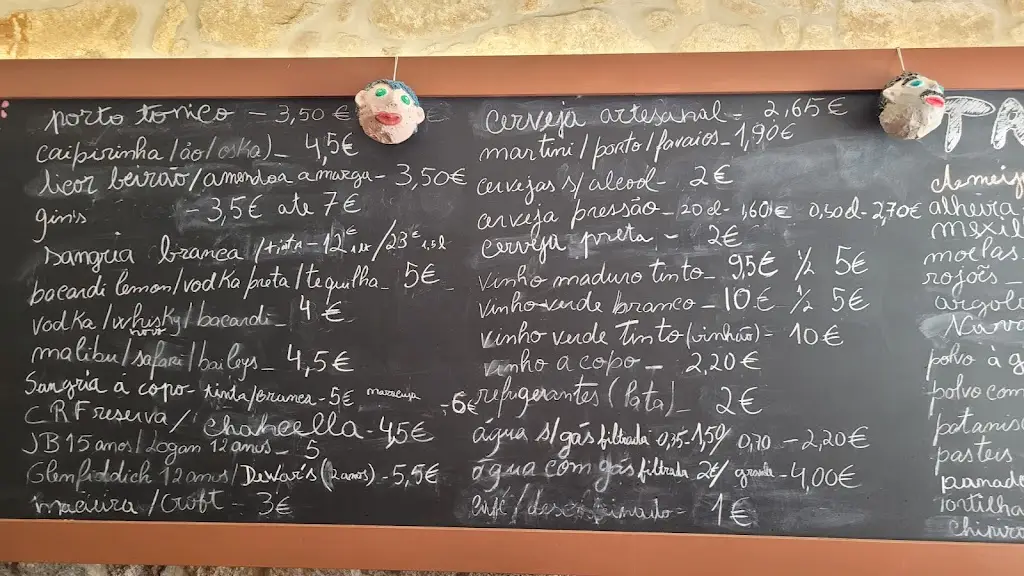 porto tonico - 3,50€
caipirinha/ão/oska)- 4,5€
licor beirão/amendoa amarga- 3,50€
gin's - 3,5€ ate 7€
sangria branca /tinta - 12€ 1L / 23€ 1,5L
bacardi lemon/vodka preta/tequilha- 5€
vodka/whisky/bacardi- 4€
malibu/safari/baileys- 4,5€
Sangria a copo- tinta/branca-5€ maracuja -6€
CRF reserva/ chancella-4,5€
JB 15 anos/Logan 12 anos- 5
Glenfiddich 12 anos/Dewar's (12 anos)-5,5€
macieira/Croft- 3€
cerveja artesanal- 2,65€
martini/porto/favaios-1,90€
cervejas s/alcool- 2€
cerveja pressão-20cl- 1,60€ 0,50cl-2,70€
cerveja preta - 2€
vinho maduro tinto- 9,5€ ½ 5€
vinho verde branco-10€ ½ 5€
vinho verde tinto(vinhão)- 10€
vinho a copo- 2,20€
refrigerantes (lata)- 2€
água s/gás filtrada 0,35-1,50/ 0,70 -2,20€
água com gás filtrada 2€/ grande-4,00€
café/descafeinado- 1€
PA
ameij
alheira
mexil
moelas
rojões
argol
Nava
polvo à g
polvo com
patanis
pasteis
panado
tortilha
chouri